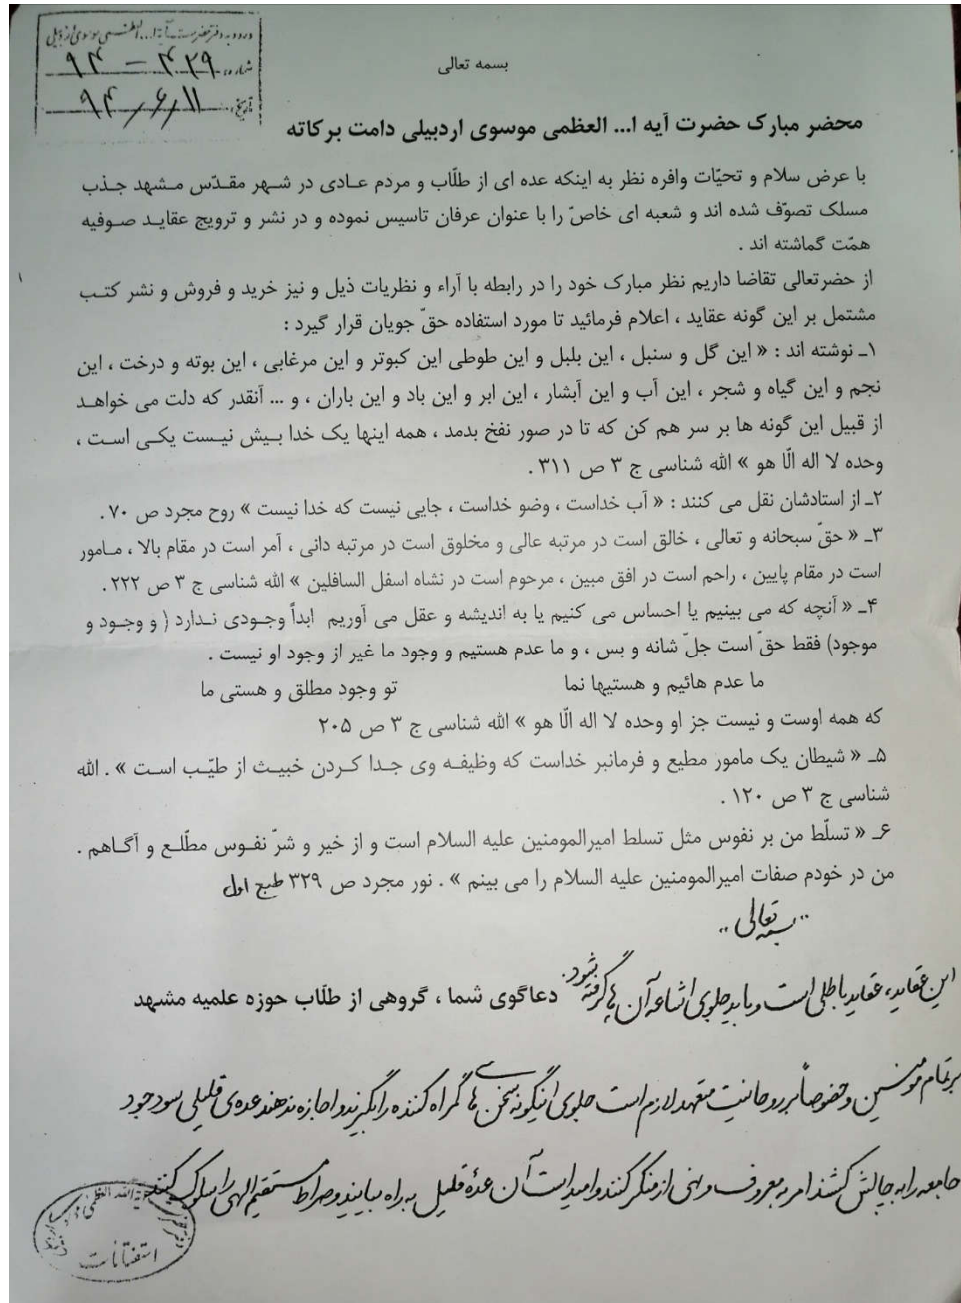 ورود به دفتر حضرت آیة ا... العظمی موسوی اردبیلی
شماره: ۴۳۹ – ۹۴
تاریخ: ۹۴/۶/۱۱
بسمه تعالی
محضر مبارک حضرت آیه ا... العظمی موسوی اردبیلی دامت برکاته
با عرض سلام و تحیّات وافره نظر به اینکه عده ای از طلّاب و مردم عادی در شهر مقدّس مشهد جذب
مسلک تصوّف شده اند و شعبه ای خاصّ را با عنوان عرفان تاسیس نموده و در نشر و ترویج عقاید صوفیه
همّت گماشته اند .
از حضرتعالی تقاضا داریم نظر مبارک خود را در رابطه با آراء و نظریات ذیل و نیز خرید و فروش و نشر کتب
مشتمل بر این گونه عقاید ، اعلام فرمائید تا مورد استفاده حقّ جویان قرار گیرد :
۱ـ نوشته اند : « این گل و سنبل ، این بلبل و این طوطی این کبوتر و این مرغابی ، این بوته و درخت ، این
نجم و این گیاه و شجر ، این آب و این آبشار ، این ابر و این باد و این باران ، و ... آنقدر که دلت می خواهد
از قبیل این گونه ها بر سر هم کن که تا در صور نفخ بدمد ، همه اینها یک خدا بیش نیست یکی است ،
وحده لا اله الّا هو » الله شناسی ج ۳ ص ۳۱۱ .
۲ـ از استادشان نقل می کنند : « آب خداست ، وضو خداست ، جایی نیست که خدا نیست » روح مجرد ص ۷۰ .
۳ـ « حقّ سبحانه و تعالی ، خالق است در مرتبه عالی و مخلوق است در مرتبه دانی ، آمر است در مقام بالا ، مامور
است در مقام پایین ، راحم است در افق مبین ، مرحوم است در نشاه اسفل السافلین » الله شناسی ج ۳ ص ۲۲۲ .
۴ـ « آنچه که می بینیم یا احساس می کنیم یا به اندیشه و عقل می آوریم ابداً وجودی ندارد ( و وجود و
موجود) فقط حقّ است جلّ شانه و بس ، و ما عدم هستیم و وجود ما غیر از وجود او نیست .
ما عدم هائیم و هستیها نما تو وجود مطلق و هستی ما
که همه اوست و نیست جز او وحده لا اله الّا هو » الله شناسی ج ۳ ص ۲۰۵
۵ـ « شیطان یک مامور مطیع و فرمانبر خداست که وظیفه وی جدا کردن خبیث از طیّب است » . الله
شناسی ج ۳ ص ۱۲۰ .
۶ـ « تسلّط من بر نفوس مثل تسلط امیرالمومنین علیه السلام است و از خیر و شرّ نفوس مطّلع و آگاهم .
من در خودم صفات امیرالمومنین علیه السلام را می بینم » . نور مجرد ص ۳۲۹ طبع اول
بسمه تعالی
این عقاید، عقاید باطلی است و باید جلوی اشاعه آن ها گرفته شود.
دعاگوی شما ، گروهی از طلّاب حوزه علمیه مشهد
بر تمام مومنین و خصوصاً بر روحانیت متعهد لازم است جلوی اینگونه سخن های گمراه کننده را بگیرند و اجازه ندهند عده ی قلیلی سودجو
جامعه را به چالش کشند امر به معروف و نهی از منکر کنند و امید است آن عدهٔ قلیل به راه بیایند و صراط مستقیم الهی را سلوک کنند
استفتائات